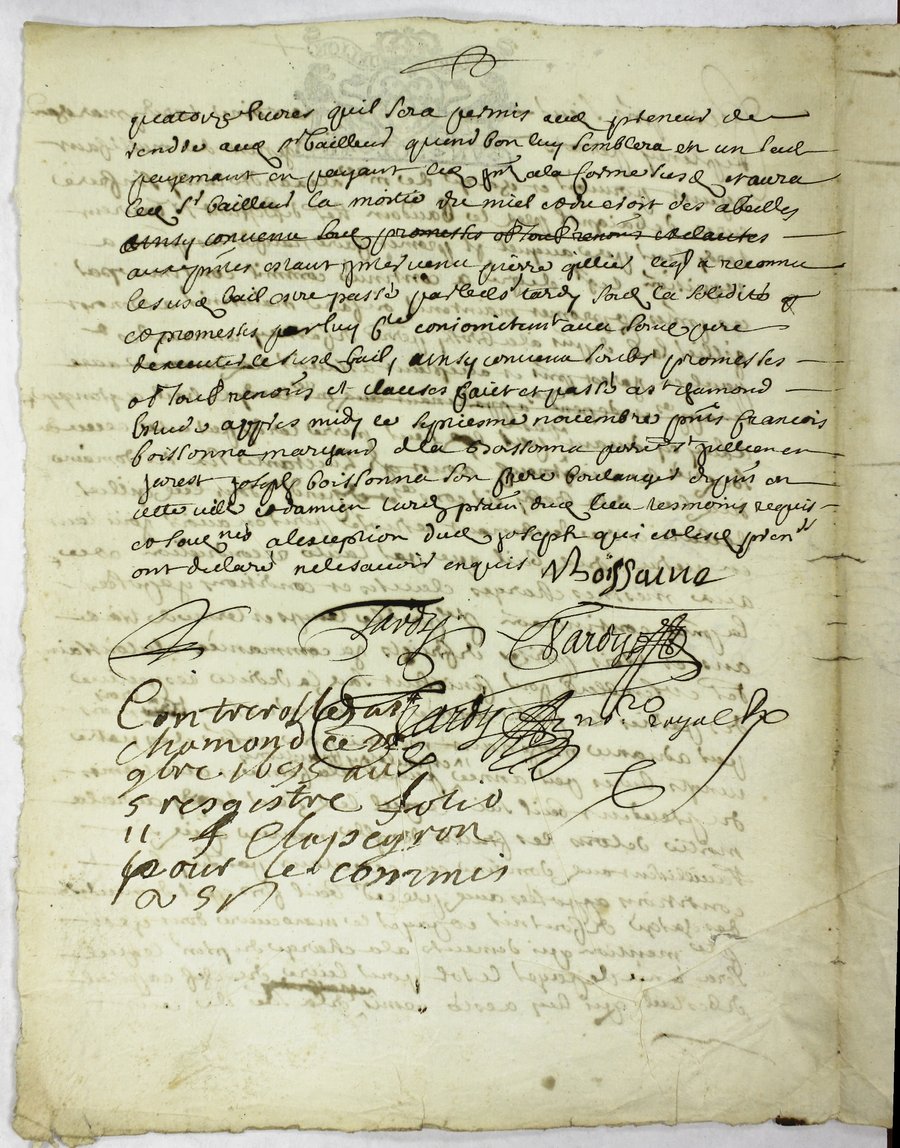 quatorze livres quil sera permis aud preneur de
rendre aud sr bailleur quand bon luy semblera en un seul
payemant en payant led a la forme susd et aura
led sr bailleur la moitié du miel et des abeilles
ainsy convenu soub promesses obl soub renons et clauses
aus pntes estant intervenu pierre gillier leql a reconnu
le susd bail estre passé par led sr tardy soub la solidité
et promesses par luy conjointemt avec sond pere
dexecuter le susd bail, ainsy convenu soubs promesses
obl soub renons et clauses faict et passé a st chamond
estude appres midy le septiesme novembre pnts françois
boissonna marchand de la boissonna parre st jullien en
jarest joseph boissonna son frere boulanger en
cette ville et damien dud lieu tesmoins requis
et soubnés a lexception dud joseph qui et led pren
ont declaré ne le sçavoir enquis Boissonna
Tardy Tardy
Controrollé a st Tardy nore royal
chamond ce 20
9bre 1695 au
5 resgistre folio
11 Clapeyron
pour le commis